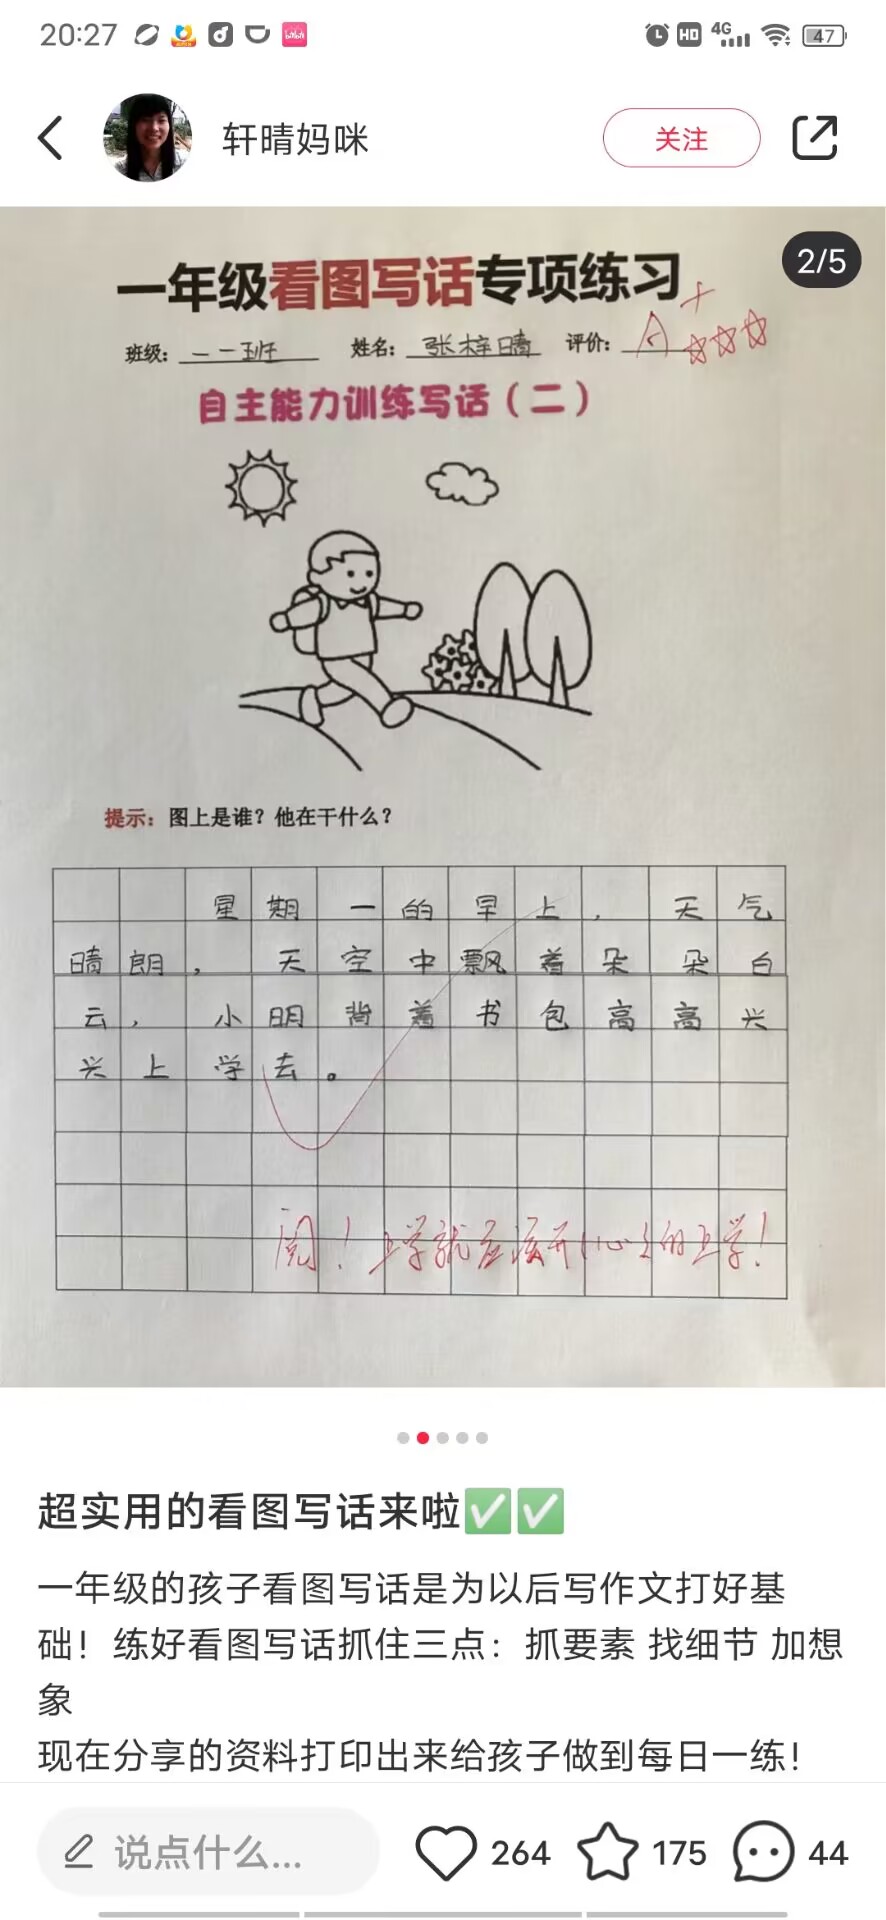 20:27
HD 4G 47
轩晴妈咪
关注
2/5
一年级看图写话专项练习
班级：一一班 姓名：张梓晴 评价：A+
自主能力训练写话（二）
提示：图上是谁？他在干什么？
星期一的早上，天气
晴朗，天空中飘着朵朵白
云，小明背着书包高高兴
兴上学去。
阅！上学就应该开开心心的上学！
超实用的看图写话来啦✅✅
一年级的孩子看图写话是为以后写作文打好基
础！练好看图写话抓住三点：抓要素 找细节 加想
象
现在分享的资料打印出来给孩子做到每日一练！
说点什么...
264
175
44